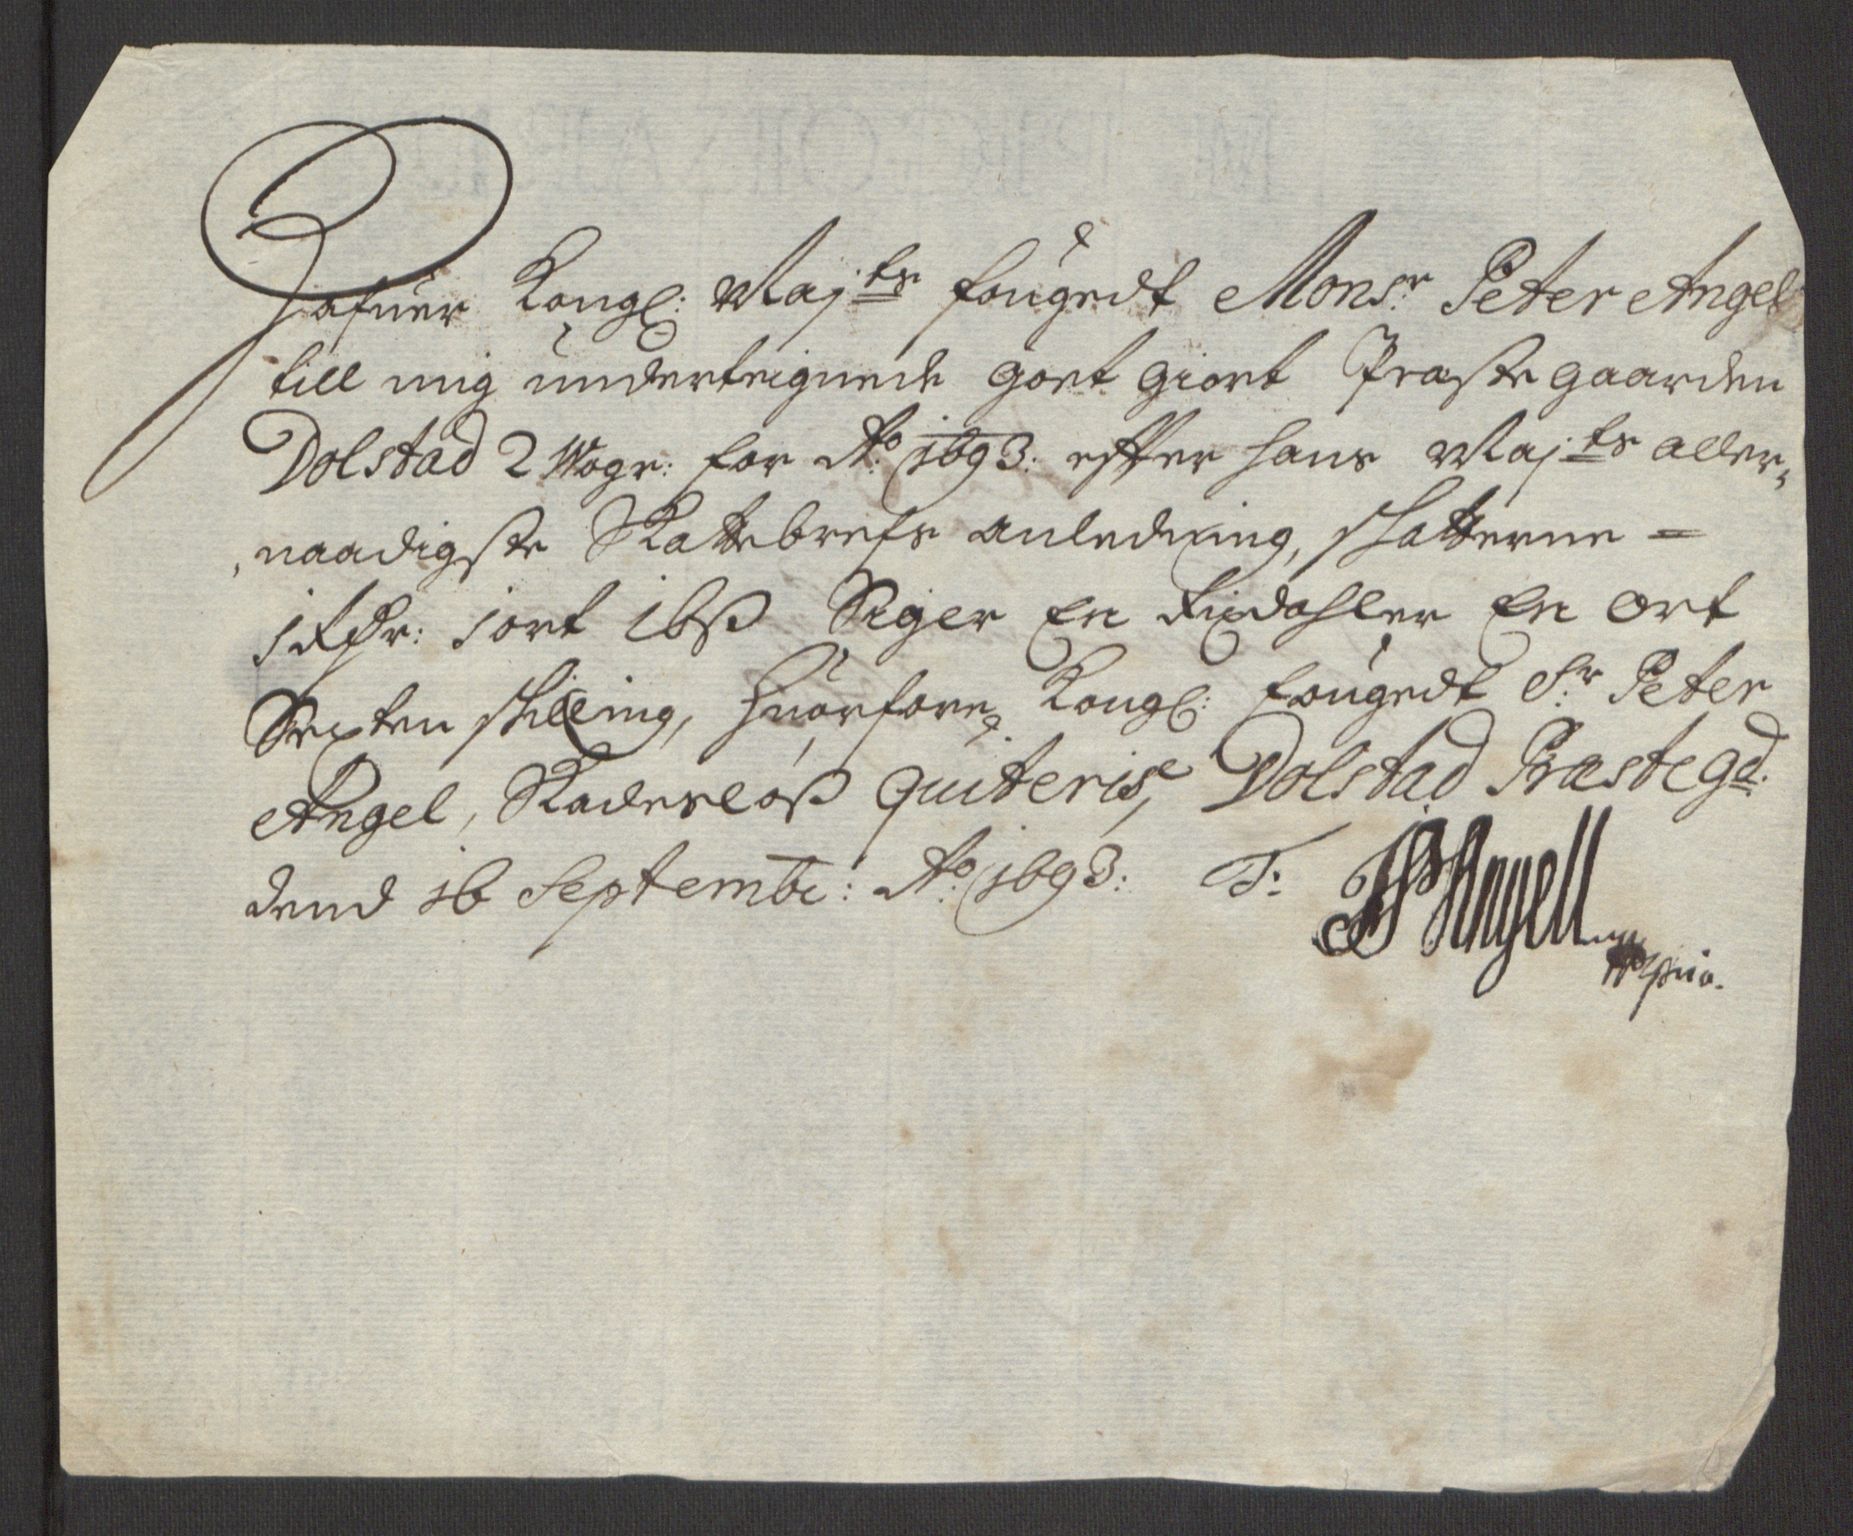 Hafuer Kongl: Maj:ts fougedt Monsr Peter Angel
till mig underteignede gott giort Præstegaarden
Dolstad 2 Wogr: for Ao: 1693: effter hans Maj:ts aller-
naadigste Skattebrefs anledning, skatterne =
1 Rdr: 1 ort 16 ß Siger En Rixdahler En ort
Sexten skilling, huorfore Kongl: fougedt Sr. Peter
Angel, Skadesløß quiteris, Dolstad Præstegd:
dend 16 Septembr: Ao: 1693: T:
Angell